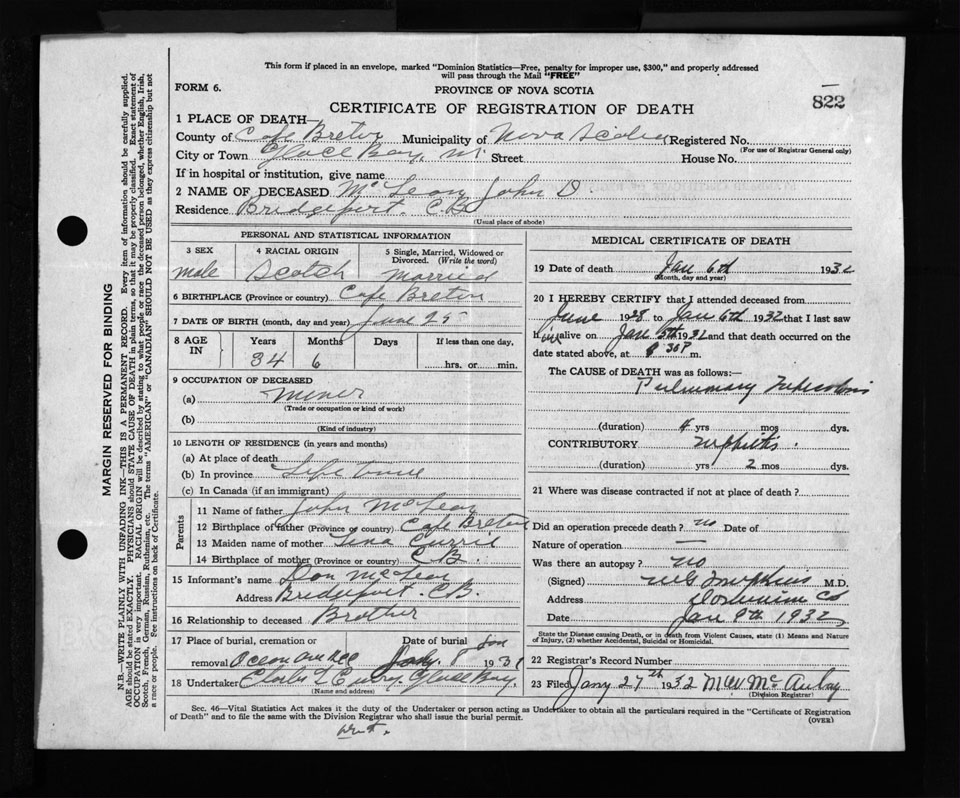 This form if placed in an envelope, marked "Dominion Statistics—Free, penalty for improper use, $300," and properly addressed
will pass through the Mail "FREE"
FORM 6.
PROVINCE OF NOVA SCOTIA
822
CERTIFICATE OF REGISTRATION OF DEATH
1 PLACE OF DEATH—
County of Cape Breton Municipality of Nova Scotia Registered No.
(For use of Registrar General only)
City or Town Glace Bay, Street House No.
If in hospital or institution, give name
2 NAME OF DECEASED McLean John D
Residence Bridgeport. C.B.
(Usual place of abode)
PERSONAL AND STATISTICAL INFORMATION
3 SEX 4 RACIAL ORIGIN 5 Single, Married, Widowed or Divorced. (Write the word)
Male Scotch Married
6 BIRTHPLACE (Province or country) Cape Breton
7 DATE OF BIRTH (month, day and year) June 25
8 AGE IN Years Months Days If less than one day,
34 6 hrs. or min.
9 OCCUPATION OF DECEASED
(a) Miner
(Trade or occupation or kind of work)
(b)
(Kind of industry)
10 LENGTH OF RESIDENCE (in years and months)
(a) At place of death
(b) In province Life time
(c) In Canada (if an immigrant)
Parents
11 Name of father John McLean
12 Birthplace of father (Province or country) Cape Breton
13 Maiden name of mother Tena Currie
14 Birthplace of mother (Province or country) C B.
15 Informant's name Dan McLean
Address Bridgeport. C.B.
16 Relationship to deceased Brother
17 Place of burial, cremation or Date of burial Jan
removal 8 1931
18 Undertaker Curry, Glace Bay.
(Name and address)
MEDICAL CERTIFICATE OF DEATH
19 Date of death Jan 6th 1932
(Month, day and year)
20 I HEREBY CERTIFY that I attended deceased from
June 1928 to Jan 6th 1932 that I last saw
him alive on Jan 5th 1932 and that death occurred on the
date stated above, at 8 30 P m.
The CAUSE of DEATH was as follows:—
Pulmonary Tuberculosis
(duration) 4 yrs mos dys.
CONTRIBUTORY Nephritis.
(duration) yrs 2 mos dys.
21 Where was disease contracted if not at place of death?
Did an operation precede death? no Date of
Nature of operation —
Was there an autopsy? no
(Signed) Tompkins M.D.
Address Dominion CB
Date Jan 8th 1932
State the Disease causing Death, or in death from Violent Causes, state (1) Means and Nature
of Injury, (2) whether Accidental, Suicidal or Homicidal.
22 Registrar's Record Number
23 Filed Jany 27th 1932 McAulay
(Division Registrar)
Sec. 46—Vital Statistics Act makes it the duty of the Undertaker or person acting as Undertaker to obtain all the particulars required in the "Certificate of Registration
of Death" and to file the same with the Division Registrar who shall issue the burial permit.
(OVER)
MARGIN RESERVED FOR BINDING
N.B.—WRITE PLAINLY WITH UNFADING INK—THIS IS A PERMANENT RECORD. Every item of information should be carefully supplied.
AGE should be stated EXACTLY. PHYSICIANS should STATE CAUSE OF DEATH in plain terms, so that it may be properly classified. Exact statement of
OCCUPATION is very important. RACIAL ORIGIN will be described by stating to what people or race the deceased person belonged, whether English, Irish,
Scotch, French, German, Russian, Ruthenian, etc. The terms "AMERICAN" or "CANADIAN" SHOULD NOT BE USED as they express citizenship but not
a race or people. See instructions on back of Certificate.